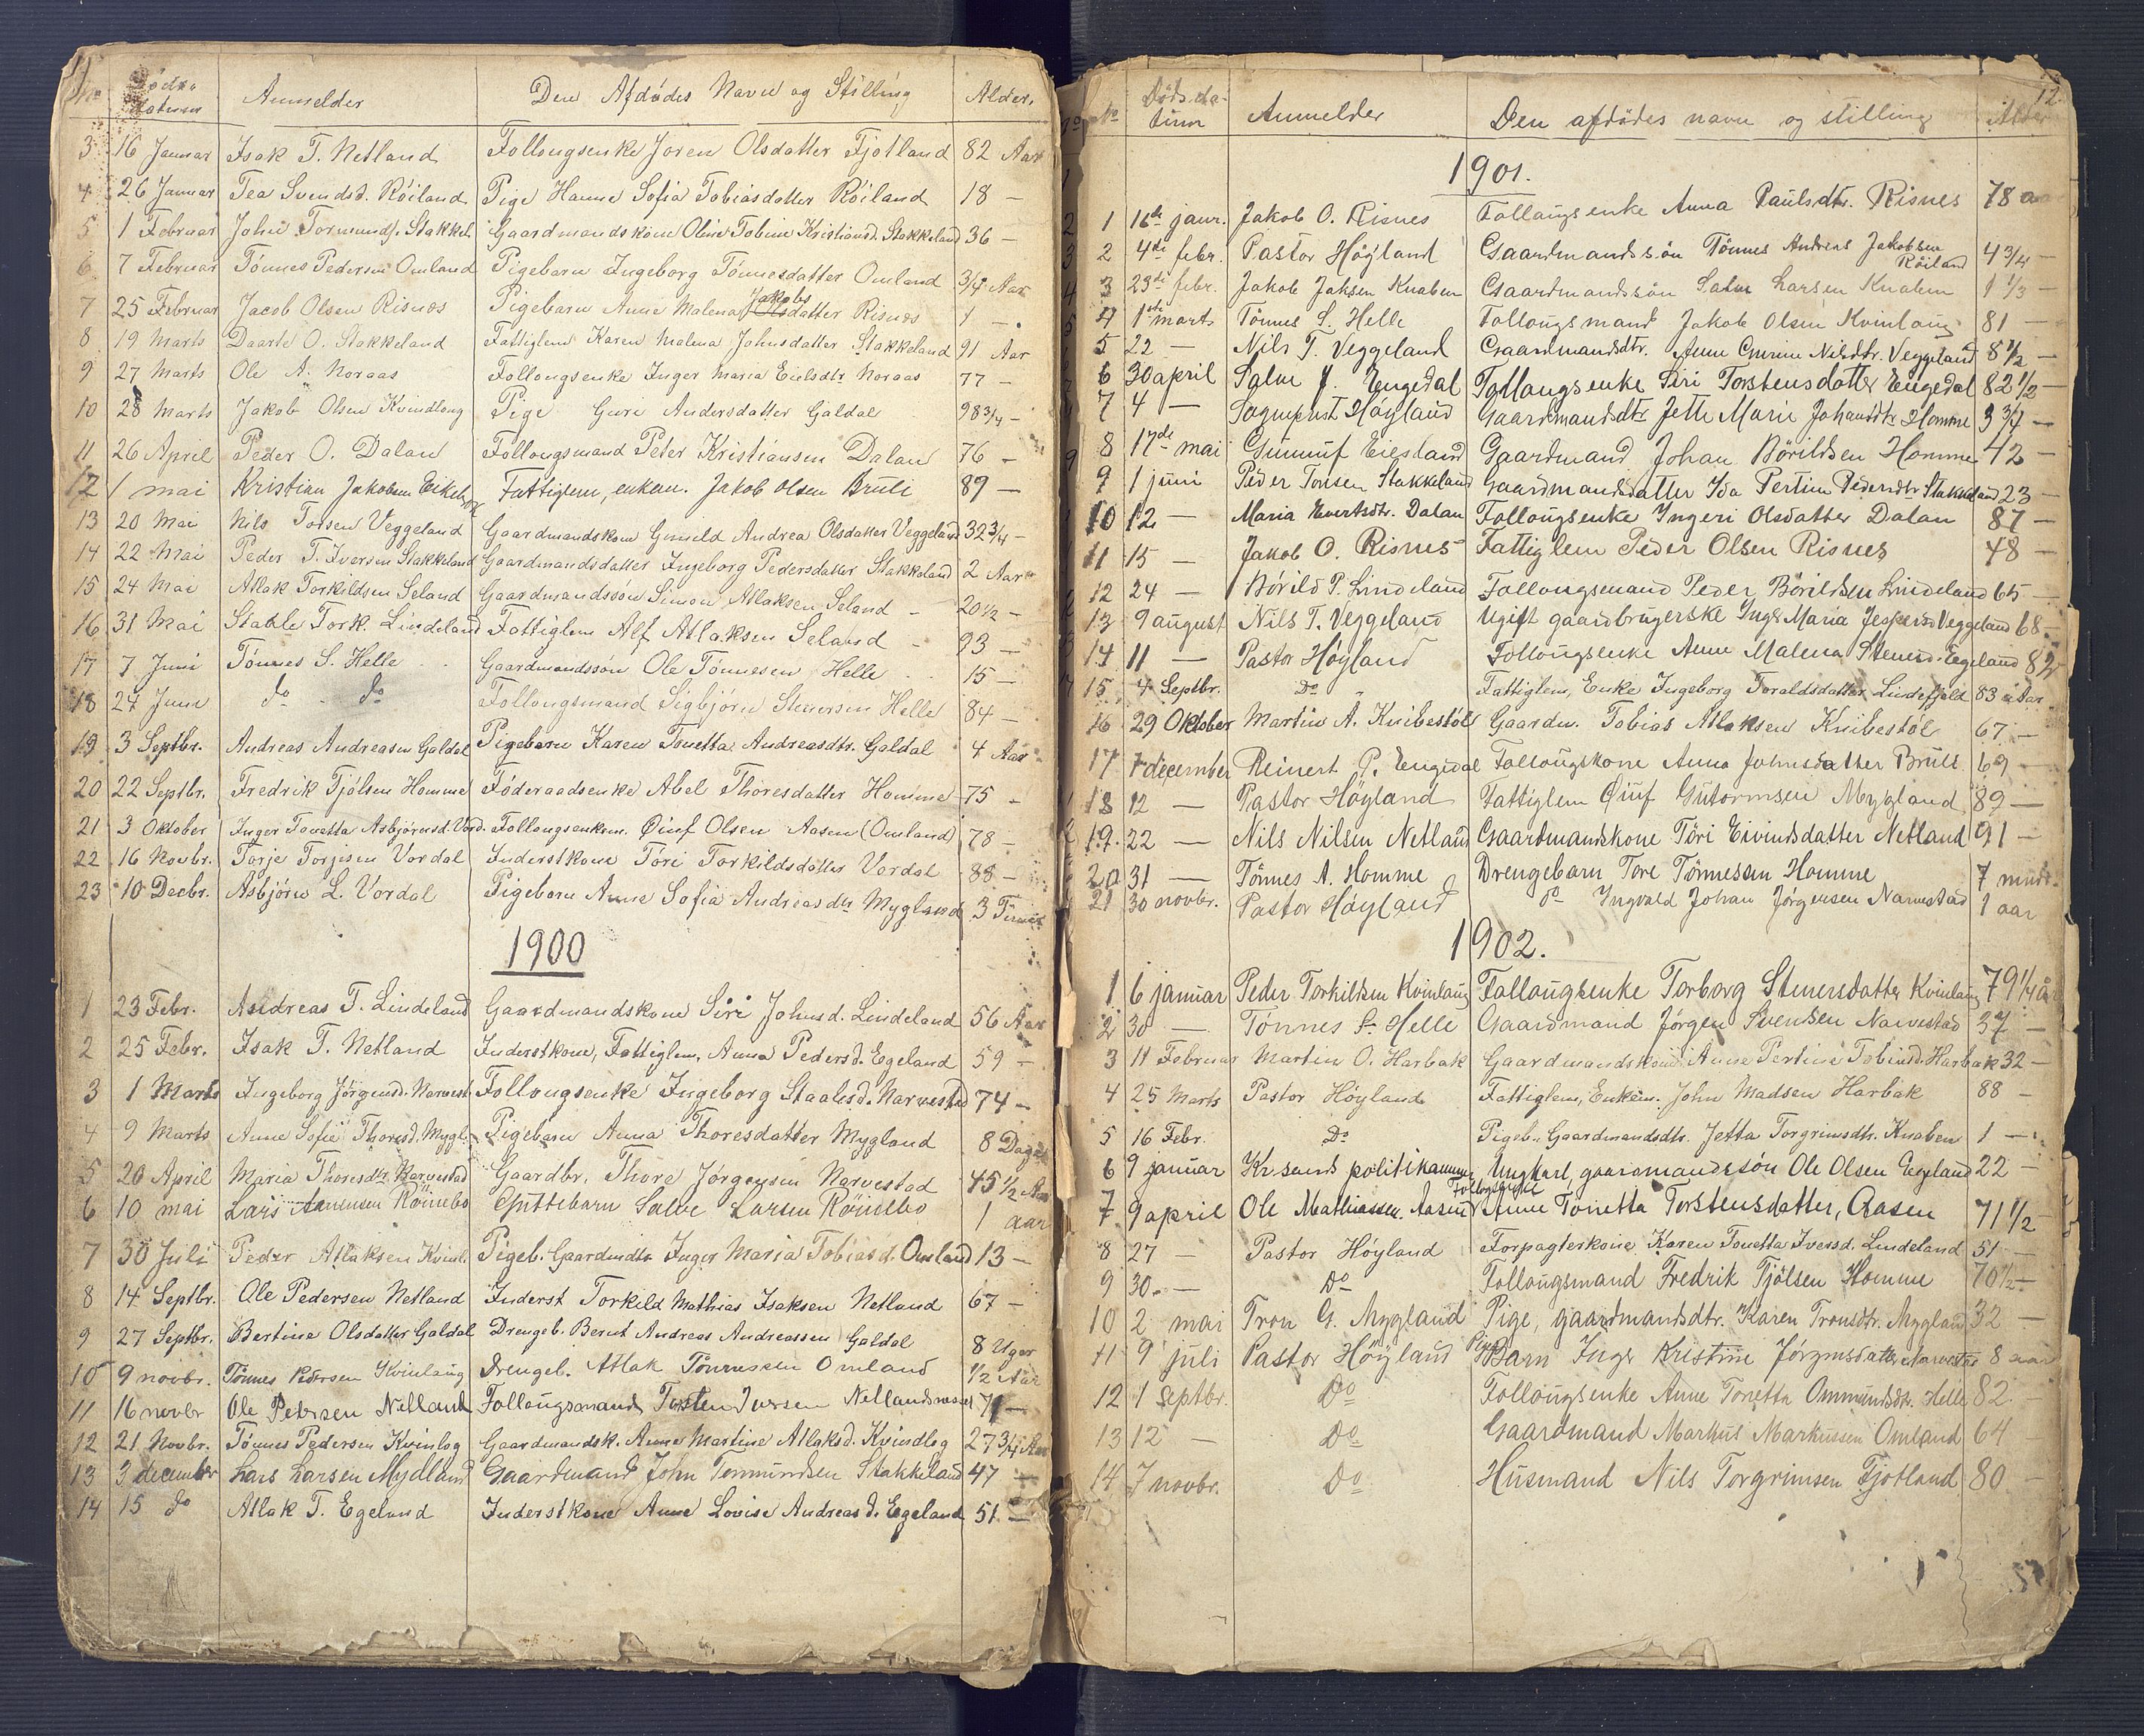 No Døds- datum Anmelder Den Afdødes Navn og Stilling Alder.
3 16 Januar Isak T. Netland Follougsenke Joren Olsdatter Fjotland 82 Aar
4 26 Januar Tea Svendsd. Röiland Pige Hanne Sofia Tobiasdatter Röiland 18 —
5 1 Februar John Tormunds. Stakkel. Gaardmandskone Oline Tobine Kristiansd. Stakkeland 36 —
6 7 Februar Tönnes Pedersen Omland Pigebarn Ingeborg Tönnesdatter Omland 3/4 Aar
7 25 Februar Jacob Olsen Risnes Pigebarn Anne Malena Jakobsdatter Risnes 1 —
8 19 Marts Daarte O. Stakkeland Fattiglem Karen Malena Johnsdatter Stakkeland 91 Aar
9 27 Marts Ole A. Noraas Follougsenke Inger Maria Eielsdtr Noraas 77 —
10 28 Marts Jakob Olsen Kvindlong Pige Guri Andersdatter Galdal 98 3/4 —
11 26 April Peder O. Dalan Follougsmand Peter Kristiansen Dalan 76 —
12 1 mai Kristian Jakobsen Fattiglem, enkem. Jakob Olsen Bruli 89 —
13 20 Mai Nils Torsen Veggeland Gaardmandskone Gunild Andrea Olsdatter Veggeland 32 3/4 —
14 22 Mai Peder T. Iversen Stakkeland Gaardmandsdatter Ingeborg Pedersdatter Stakkeland 2 Aar
15 24 Mai Atlak Torkildsen Seland Gaardmandssön Simon Atlaksen Seland — 20 1/2 —
16 31 Mai Staale Tork. Lindeland Fattiglem Alf Atlaksen Seland — 93 —
17 7 Juni Tönnes S. Helle Gaardmandssön Ole Tönnesen Helle 15 —
18 24 Juni do do Follougsmand Sigbjörn Stenersen Helle 84 —
19 3 Septbr. Andreas Andreasen Galdal Pigebarn Karen Tonetta Andreasdtr. Galdal 4 Aar
20 22 Septbr. Fredrik Tjölsen Homme Föderaadsenke Abel Thoresdatter Homme 75 —
21 3 Oktober Inger Tonetta Asbjörnsd. Vord. Follougsenkem. Öiuf Olsen Aasen (Omland) 78 —
22 16 Novbr. Torje Torjesen Vordal Inderstkone Töri Torkildsdatter Vordal 88 —
23 10 Decbr. Asbjörn L. Vordal Pigebarn Anne Sofia Andreasdtr Mygland 3
1900
1 23 Febr. Andreas T. Lindeland Gaardmandskone Siri Johnsd. Lindeland 56 Aar
2 25 Febr. Isak T. Netland Inderstkone, Fattiglem, Anna Pedersd. Egeland 59 —
3 1 Marts Ingeborg Jörgensd. Narvest. Follougsenke Ingeborg Staalesd. Narvestad 74 —
4 9 Marts Anne Sofie Thoresd. Mygl. Pigebarn Anna Thoresdatter Mygland 8 Dage
5 20 April Maria Thoresdtr. Narvestad Gaardbr. Thore Jörgensen Narvestad 45 1/2 Aar
6 10 mai Lars Aanensen Rönnebo Guttebarn Salve Larsen Rönnebo 1 aar
7 30 Juli Peder Atlaksen Kvinl. Pigeb. Gaardmdtr Inger Maria Tobiasd. Omland 13 —
8 14 Septbr. Ole Pedersen Netland Inderst Torkild Mathias Isaksen Netland 67 —
9 27 Septbr. Bertine Olsdatter Galdal Drengeb. Bernt Andreas Andreassen Galdal 8 Uger
10 9 novbr. Tönnes Pedersen Kvinlaug Drengeb. Atlak Tönnessen Omland 1/2 Aar
11 16 novbr Ole Petersen Netland Follougsmand Torsten Iversen Netlandsneset 71 —
12 21 Novbr. Tönnes Pedersen Kvinlog Gaardmandsk. Anne Martine Atlaksd. Kvindlog 27 3/4 Aar
13 3 december Lars Larsen Mydland Gaardmand John Tormundsen Stakkeland 47 —
14 15 do Atlak T. Egeland Inderstkone Anne Lovise Andreasd. Egeland 51 —
12
No Døds-da-tum Anmelder Den afdödes navn og stilling Alder
1901.
1 16de janr. Jakob O. Risnes Follougsenke Anna Paulsdtr. Risnes 78 aar
2 4de febr. Pastor Höyland Gaardmandssön Tönnes Andreas Jakobsen Röiland 4 3/4 —
3 23de febr. Jakob Jaksen Knaben Gaardmandssön Salve Larsen Knaben 1 1/3 —
4 1ste marts Tönnes S. Helle Follougsmand Jakob Olsen Kvinlaug 81 —
5 22 — Nils T. Veggeland Gaardmandsdtr. Anne Gurine Nilsdtr. Veggeland 8 1/2 —
6 30 april Salve J. Engedal Follaugsenke Siri Torstensdatter Engedal 82 1/2 —
7 4 — Sogneprest Höyland Gaardmandsdtr Jette Marie Johansdtr Homme 3 3/4 —
8 17de mai Gunnuf Eiesland Gaardmand Johan Börildsen Homme 42 —
9 1 juni Peder Tonsen Stakkeland Gaardmandsdatter Ida Pertine Pedersdtr Stakkeland 23 —
10 12 — Maria Evertsdtr. Dalan Follougsenke Yngeri Olsdatter Dalan 87 —
11 15 — Jakob O. Risnes Fattiglem Peder Olsen Risnes 48 —
12 24 — Börild P. Lindeland Follougsmand Peder Börildsen Lindeland 65 —
13 9 august Nils T. Veggeland Ugift gaardbrugerske Inger Maria Jespersd Veggeland 68 —
14 11 — Pastor Höyland Follougsenke Anne Malena Stenersd. Egeland 82
15 4 Septbr. Do " Fattiglem, Enke Ingeborg Toraldsdatter Lindefjeld 83 Aar
16 29 Oktober Martin A. Knibestöl Gaardm. Tobias Atlaksen Knibestöl 67 —
17 7 december Reinert P. Engedal Follougskone Anna Johnsdatter Bruli 69 —
18 12 — Pastor Höyland Fattiglem Öiuf Gutormsen Mygland 89 —
19. 22 — Nils Nilsen Netland Gaardmandskone Töri Eivindsdatter Netland 91 —
20 31 — Tönnes A. Homme Drengebarn Tore Tönnesen Homme 7 mndr.
21 30 novbr. Pastor Höyland do Ingvald Johan Jörgensen Narvestad 1 aar
1902.
1 6 januar Peder Torkildsen Kvinlaug Follougsenke Torborg Stenersdatter Kvinlaug 79 1/4 år
2 30 — Tönnes S. Helle Gaardmand Jörgen Svendsen Narvestad 37 —
3 11 Februar Martin O. Harbak Gaardmandskone Anne Pertine Tobiasd. Harbak 32 —
4 25 Marts Pastor Höyland Fattiglem, Enkem. John Madsen Harbak 88 —
5 16 Febr. Do Pigeb. Gaardmandsdtr. Jetta Torgrimsdtr. Knaben 1 —
6 9 januar Kr.sands politikammer Ungkarl, gaardmandssön Ole Olsen Egeland 22 —
7 9 april Ole Mathiassen Aasen Anne Tonetta Torstensdatter, Aasen 71 1/2
8 27 — Pastor Höyland Forpagterkone Karen Tonetta Iversd. Lindeland 51 —
9 30. — Do Follougsmand Fredrik Tjölsen Homme 70 1/2 —
10 2 mai Tron G. Mygland Pige, gaardmandsdtr. Karen Tronsdtr. Mygland 32 —
11 9 juli Pastor Höyland Pigebarn Inger Kristine Jörgensdatter Narvestad 8 aar
12 1 Septbr. Do Follougsenke Anne Tonetta Ommundsdtr. Helle 82
13 12 — Do Gaardmand Markus Markussen Omland 64 —
14 7 novbr. Do Husmand Nils Torgrimsen Fjotland 80 —